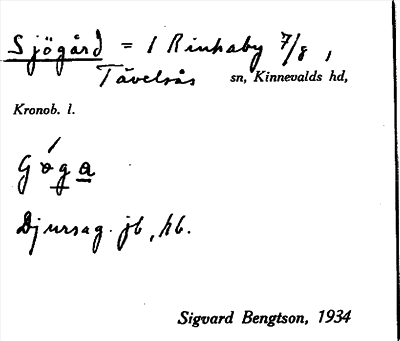 Sjögård = 1 Rinkaby 7/8,
Tävelsås sn, Kinnevalds hd,
Kronob. l.
Góga
Djursag. jb, hb.
Sigvard Bengtson, 1934